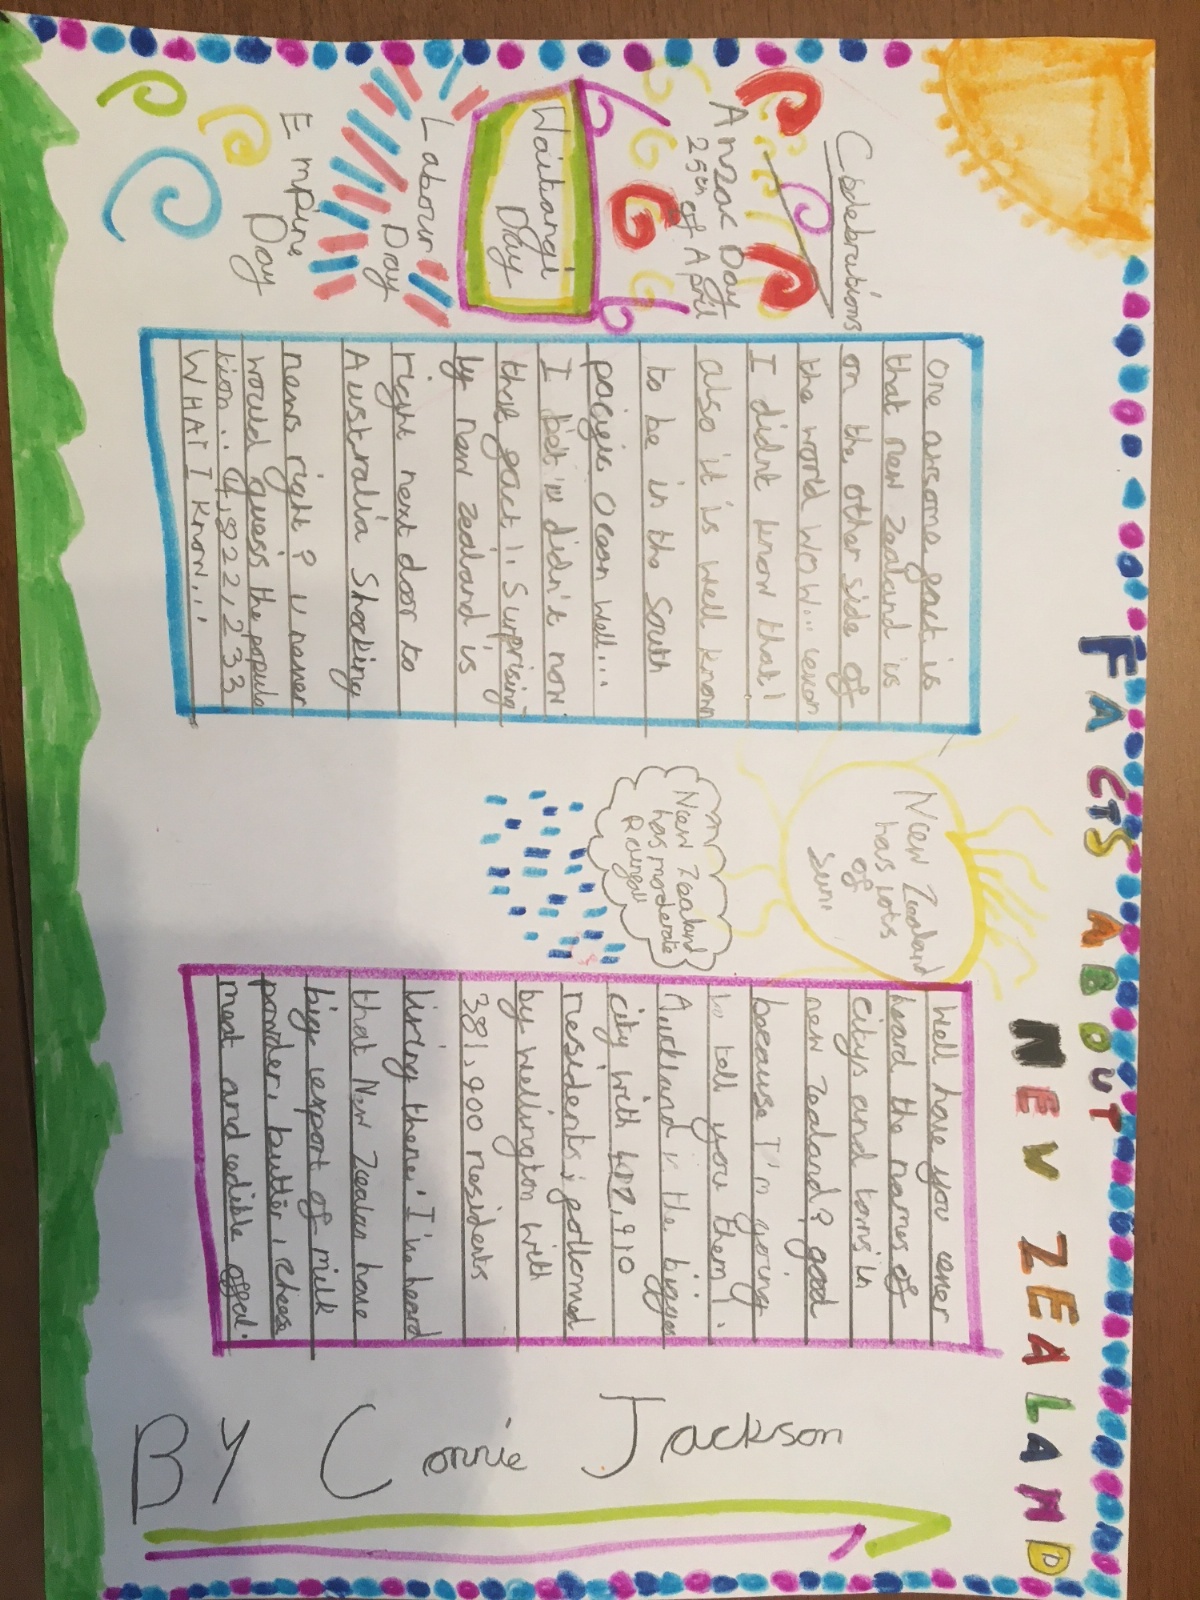 FACTS ABOUT
NEW ZEALAND
Celebrations
Anzac Day
25th of April
Waitangi
Day
Labour
Day
Empire
Day
One awsome fact is
that new zealand is
on the other side of
the world WOW... even
I didnt know that!
also it is well known
to be in the south
pacific Ocean well...
I bet u didn't now
that fact!. Surprising
ly new zealand is
right next door to
Australia Shocking
news right? u never
would guess the popula
tion... 4,822,233
WHAT I know...!
New Zealand
has lots
of
sun!
New Zealand
has morderate
Raingall
Well have you ever
heard the names of
citys and towns in
new zealand? good
because I'm going
to tell you them!.
Auckland is the bigges
city with 417,910
residents; follomed
by wellington with
381,900 residents
living there! I've heard
that New Zealan have
big export of milk
powder, butter, cheese
meat and edible offal.
BY Connie Jackson